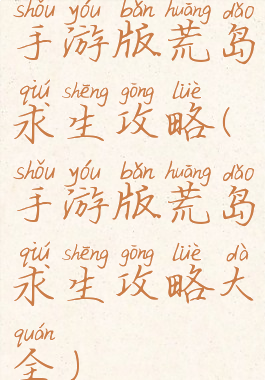 shǒu yóu bǎn huāng dǎo
手游版荒岛
qiú shēng gōng lüè
求生攻略(
shǒu yóu bǎn huāng dǎo
手游版荒岛
qiú shēng gōng lüè dà
求生攻略大
quán
全)